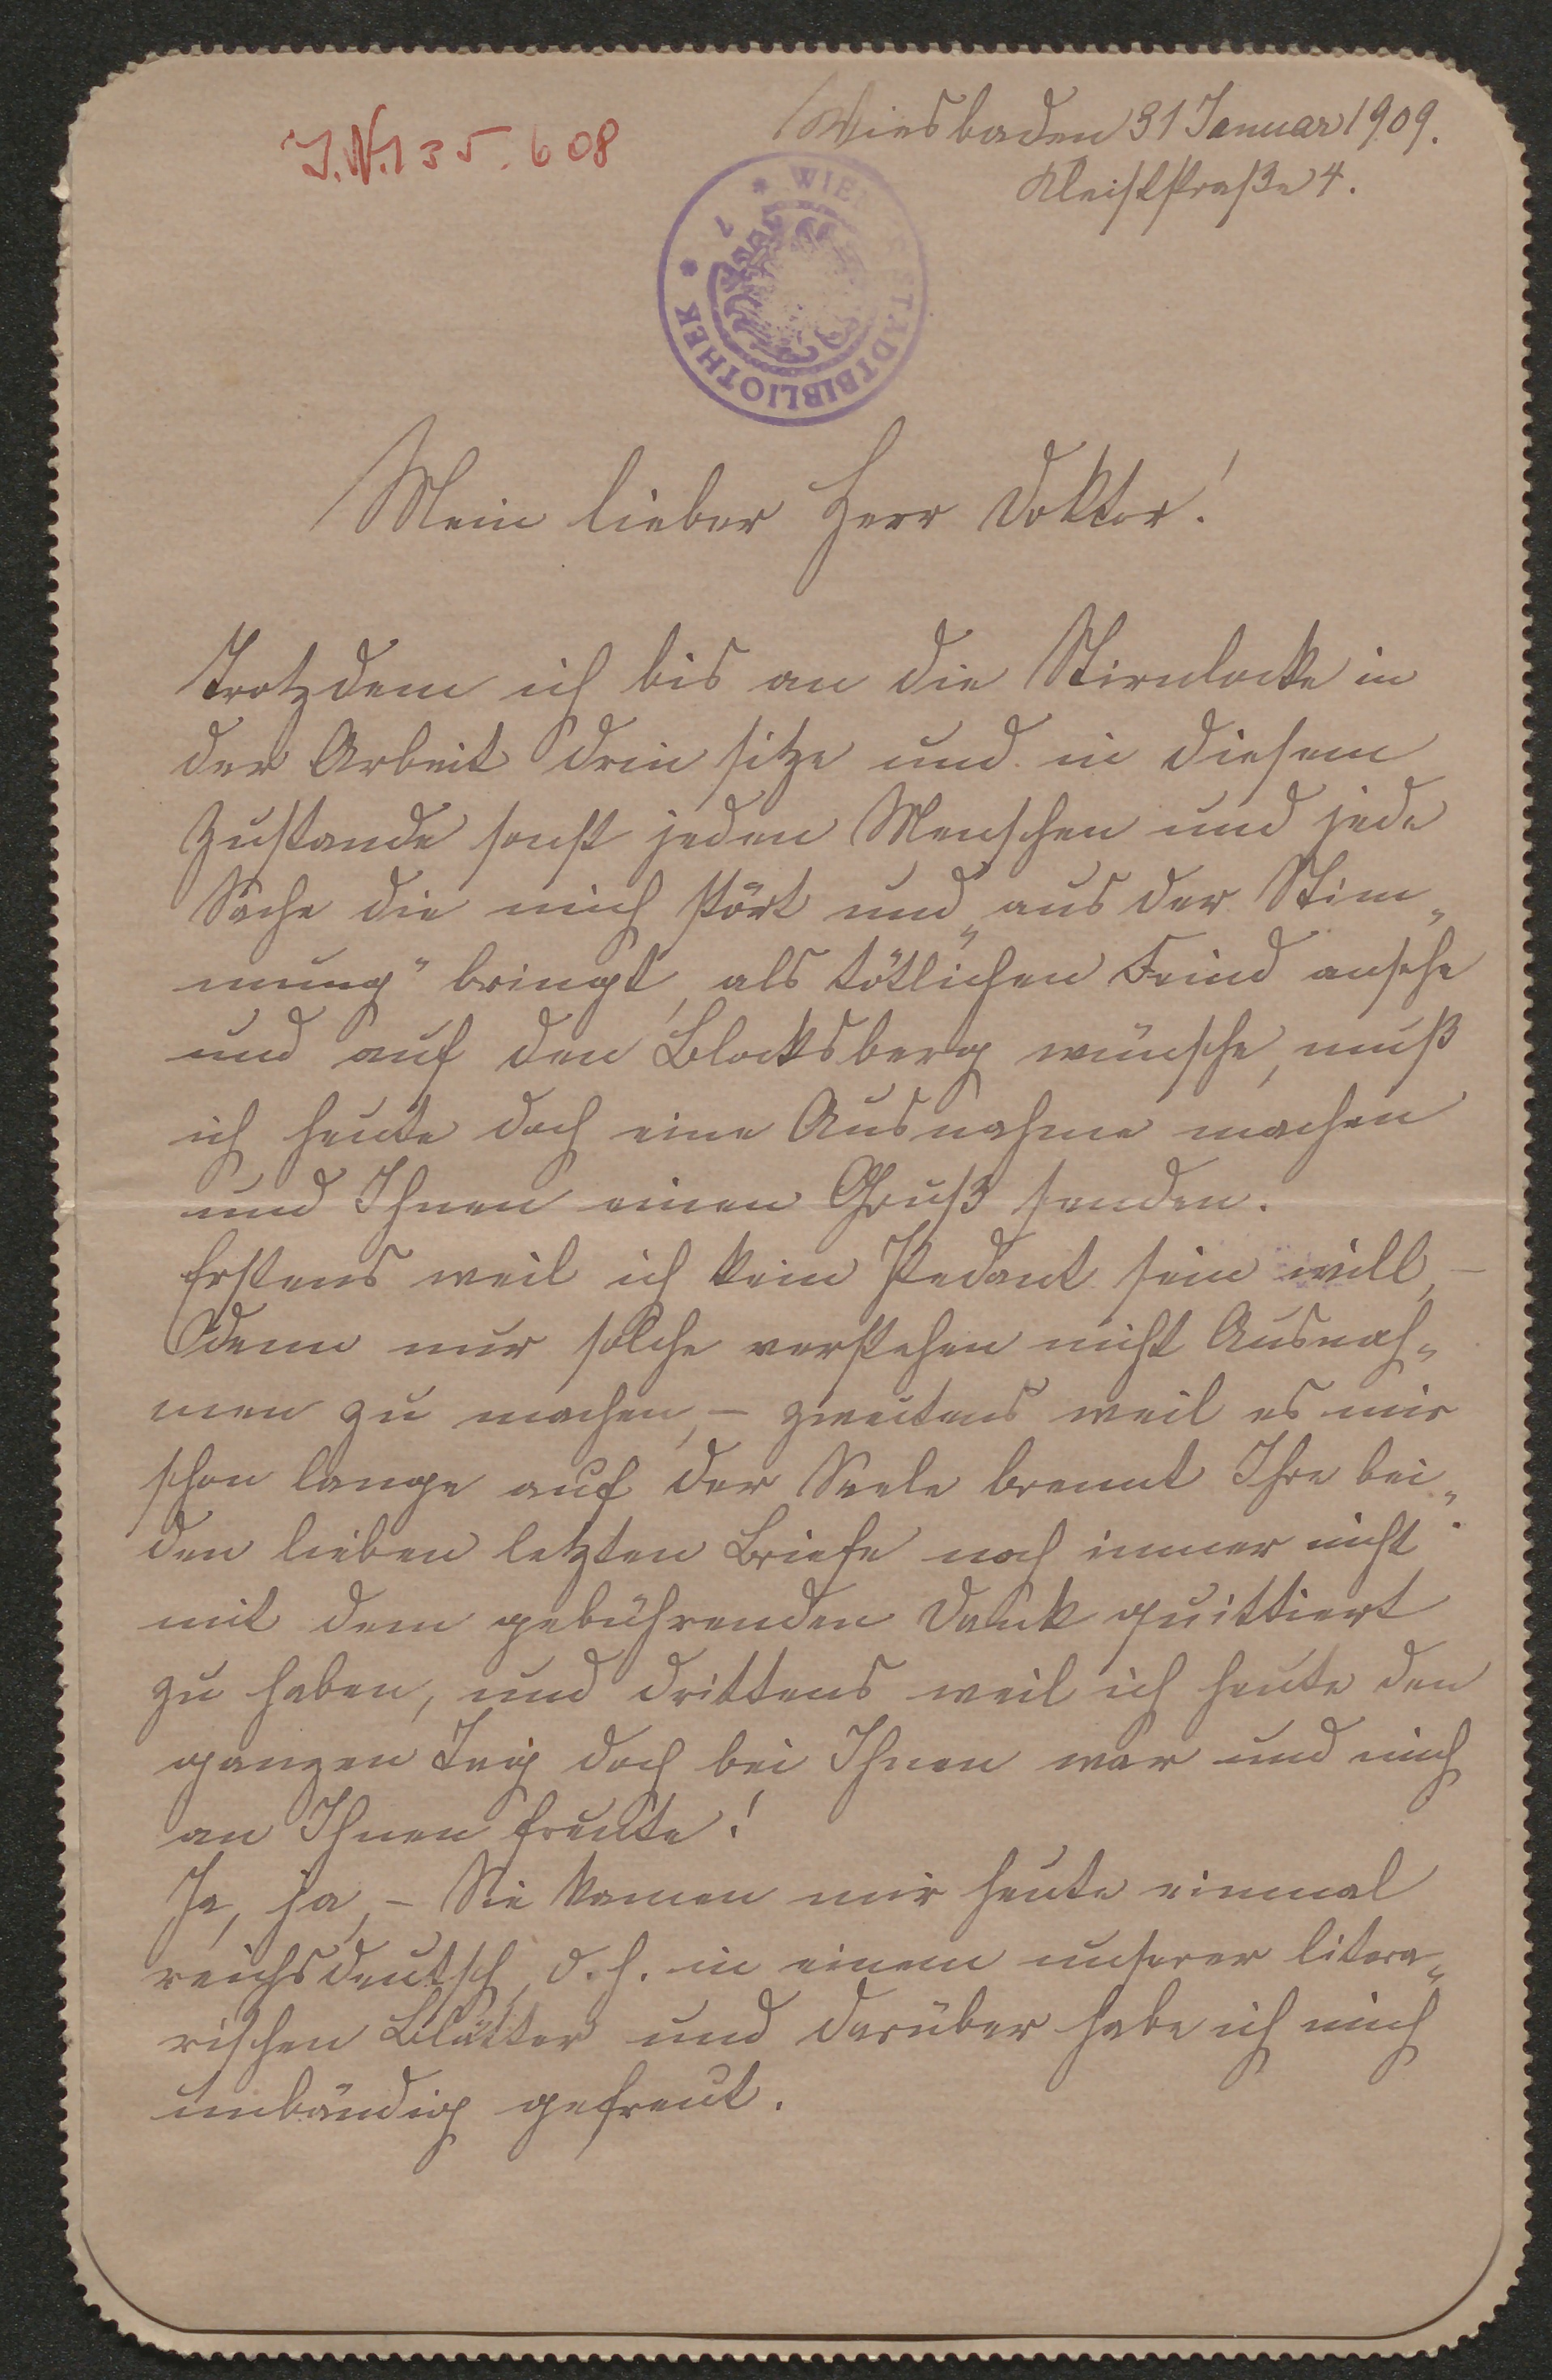 Wiesbaden 31 Januar 1909.
J.N. 135.608
Kleiststraße 4.
WIENER STADTBIBLIOTHEK
Mein lieber Herr Doktor!
Trotzdem ich bis an die Stirnlocke in
der Arbeit drin sitze und in diesem
Zustande sonst jeden Menschen und jede
Sache die mich stört und „aus der Stim„
mung" bringt, als tötlichen Feind ansehe
und auf den Blocksberg wünsche, muß
ich heute doch eine Ausnahme machen
und Ihnen einen Gruß senden.
Erstens weil ich kein Pedant sein will, –
denn nur solche verstehen nicht Ausnah„
men zu machen, – zweitens weil es mir
schon lange auf der Seele brennt Ihre bei„
den lieben letzten Briefe noch immer nicht
mit dem gebührenden Dank quittiert
zu haben, und drittens weil ich heute den
ganzen Tag doch bei Ihnen war und mich
an Ihnen freute!
Ja, ja, – Sie kamen mir heute einmal
reichsdeutsch, d.h. in einem unserer litera„
rischen Blätter und darüber habe ich mich
unbändig gefreut.